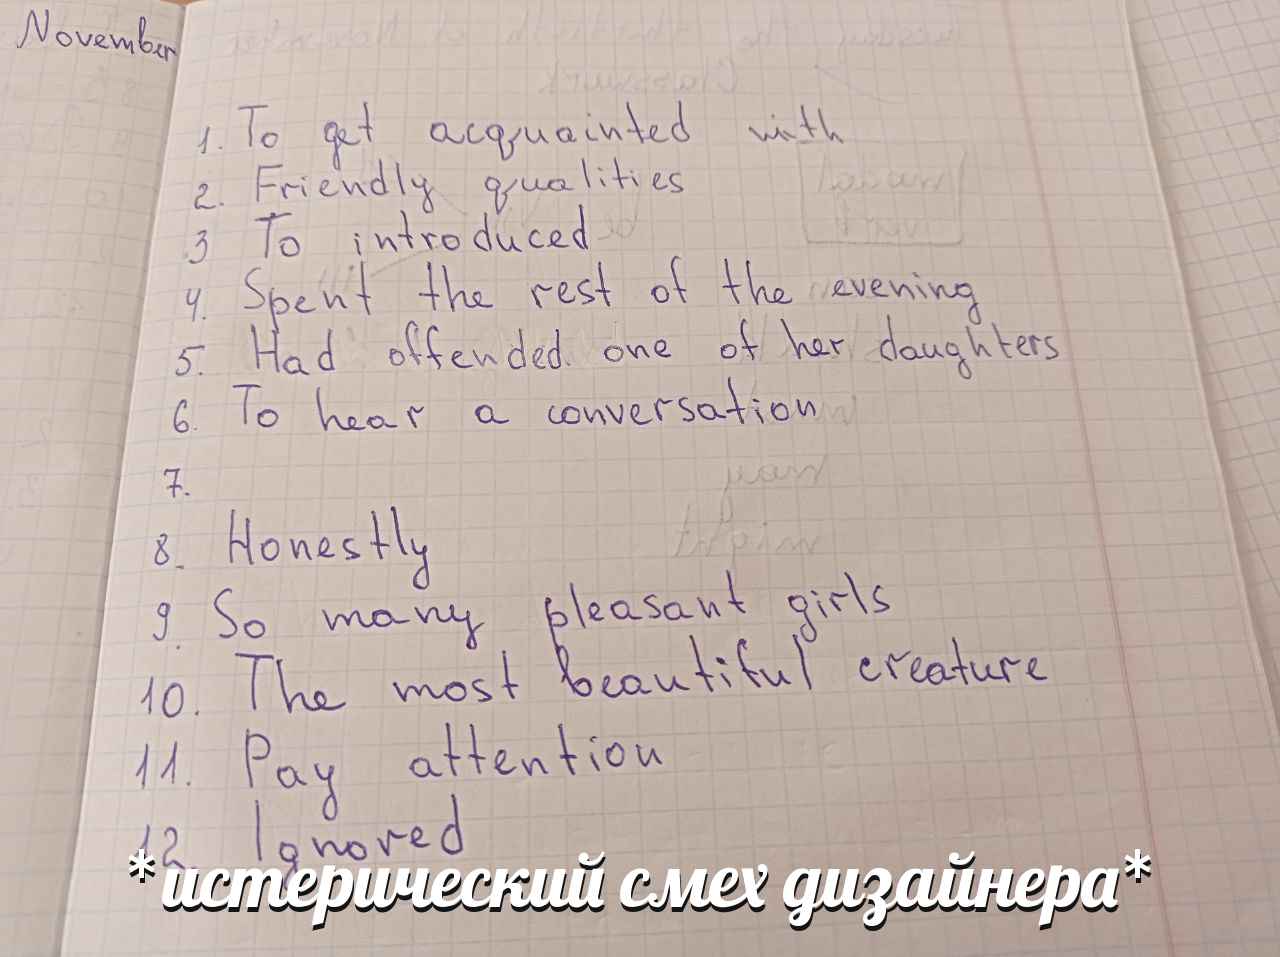 November
1. To get acquainted with
2. Friendly qualities
3 To introduced
4. Spent the rest of the evening
5. Had offended. one of her daughters
6. To hear a conversation
7.
8. Honestly
9. So many pleasant girls
10. The most beautiful creature
11. Pay attention
12. Ignored
*истерический смех дизайнера*